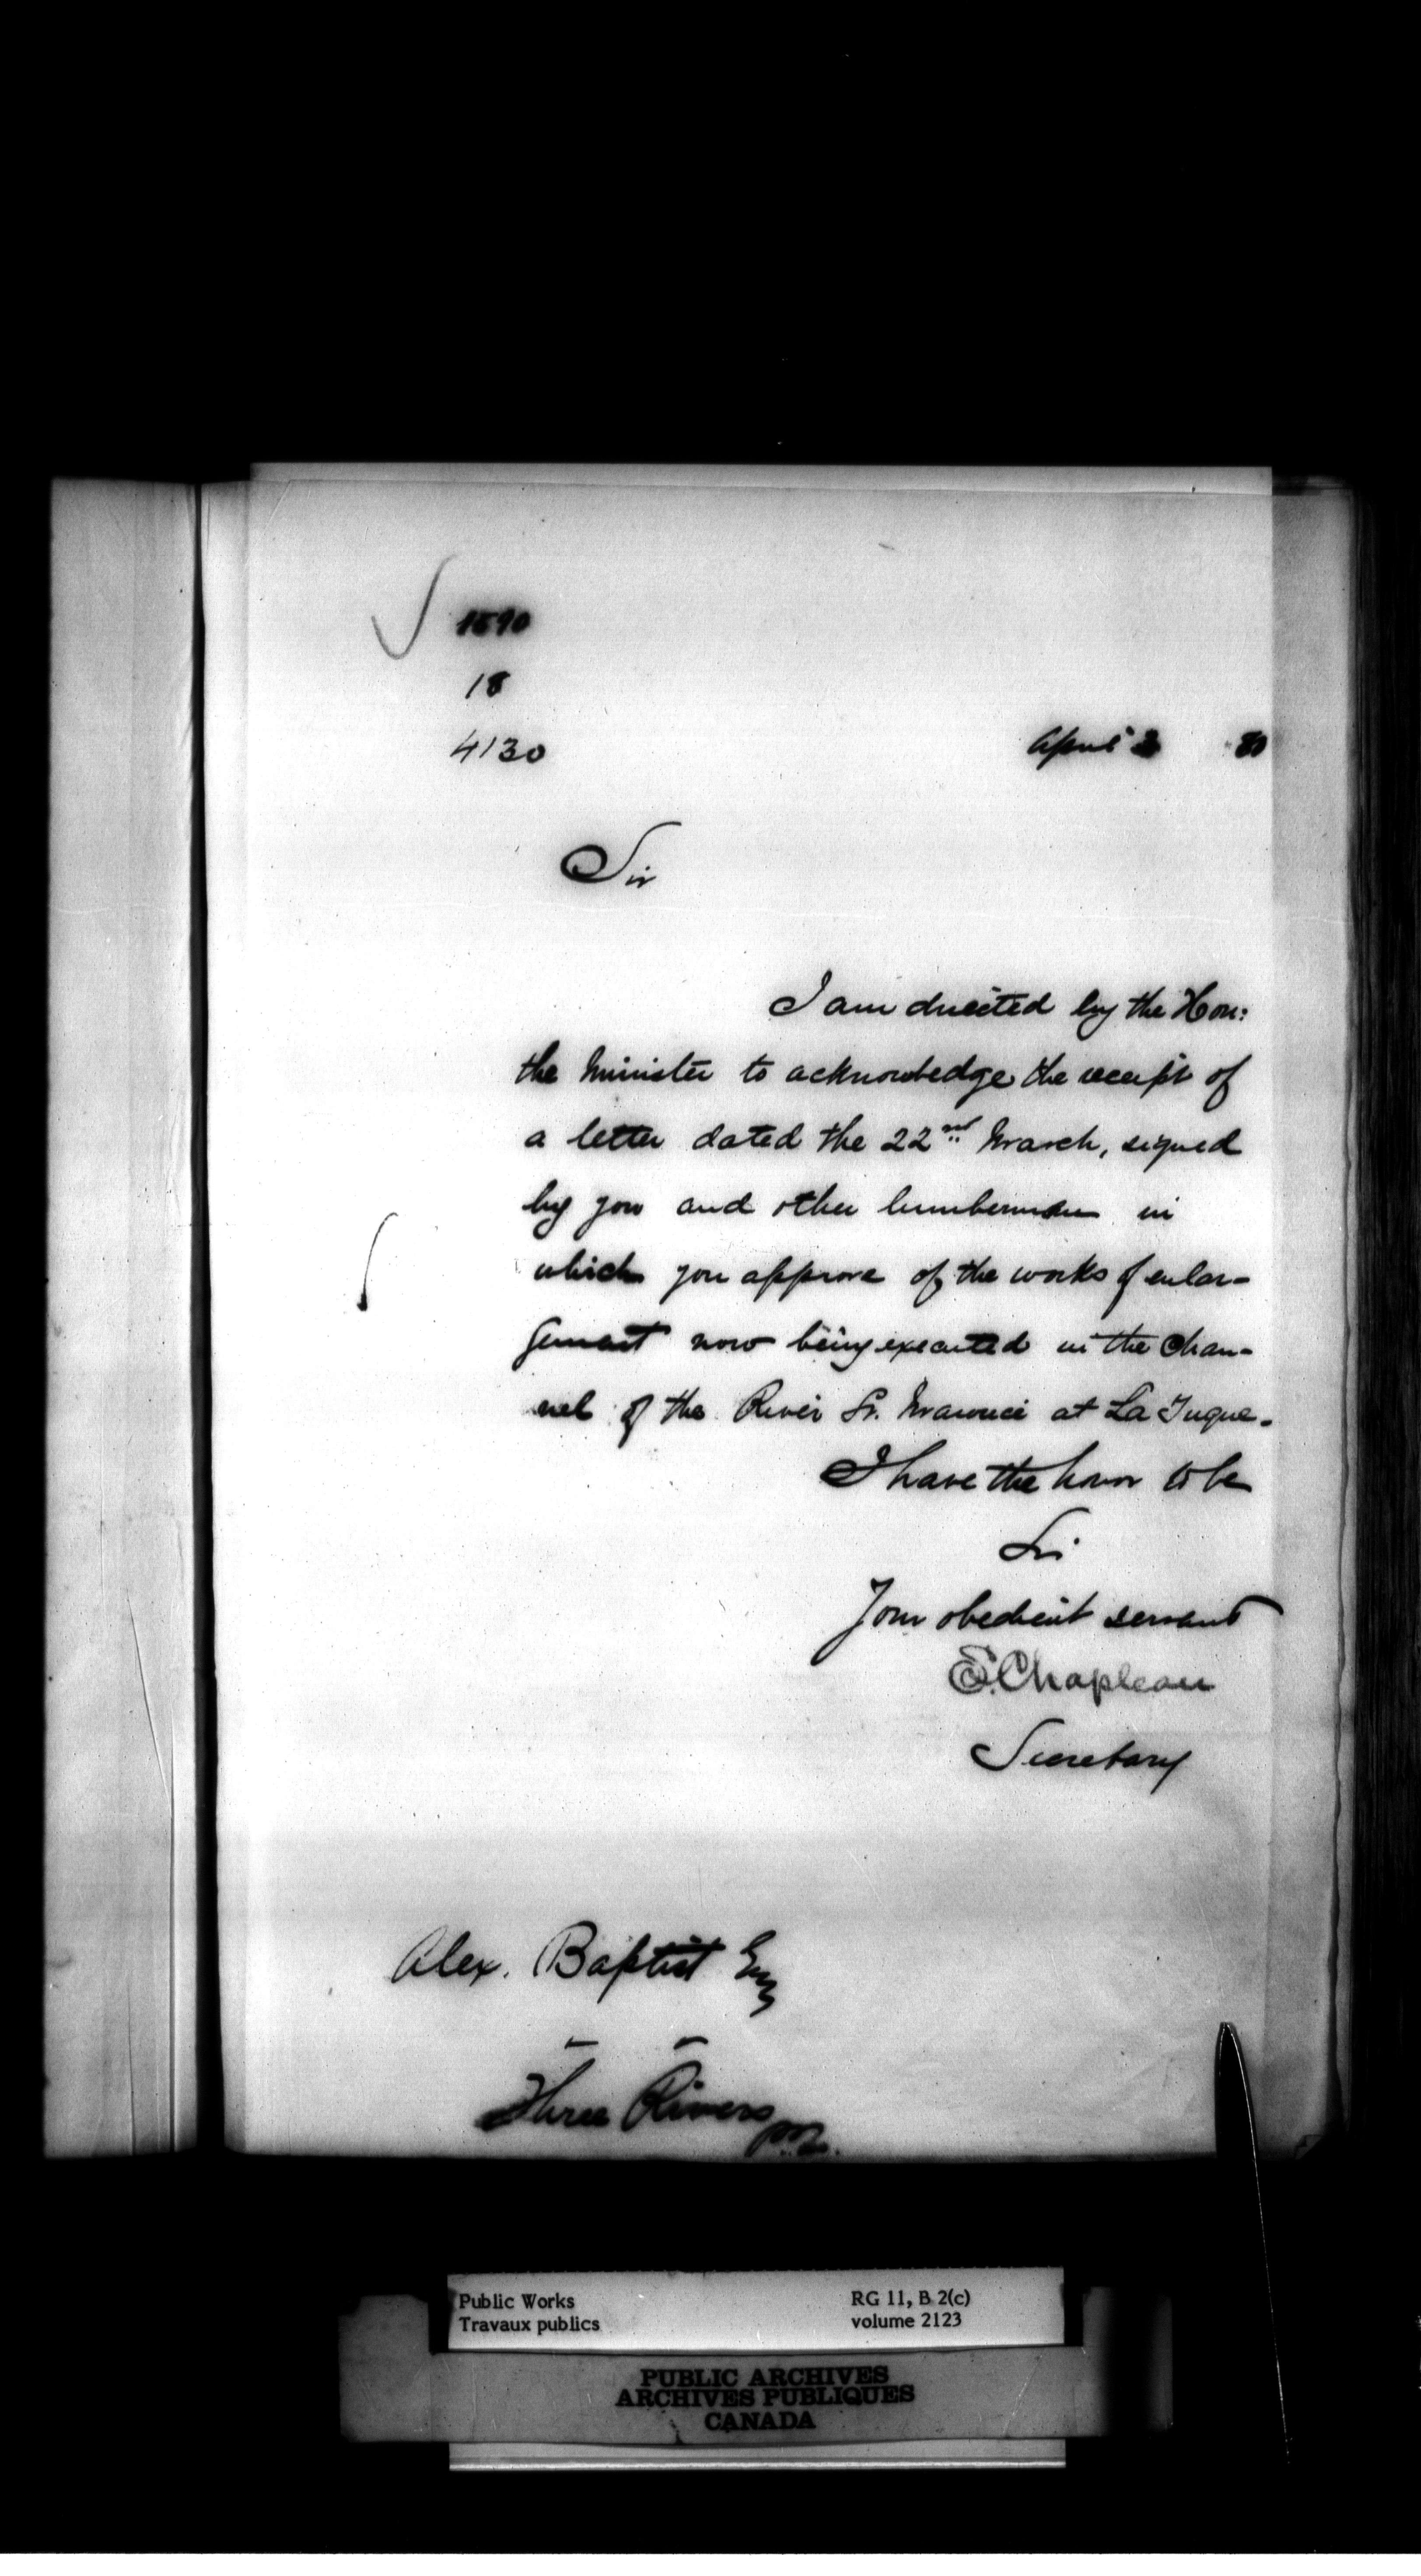 1590
18
4130
April 80
Sir
I am directed by the Hon:
the Minister to acknowledge the receipt of
a letter dated the 22nd March, signed
by you and other lumbermen in
which you approve of the works of enlar-
gement now being executed in the Chan-
nel of the River St. Maurice at La Tuque.
I have the honor to be
Sir
Your obedient servant
E. Chapleau
Secretary
Alex. Baptist Esq
Three Rivers
P.Q.
Public Works RG 11, B 2(c)
Travaux publics volume 2123
PUBLIC ARCHIVES
ARCHIVES PUBLIQUES
CANADA